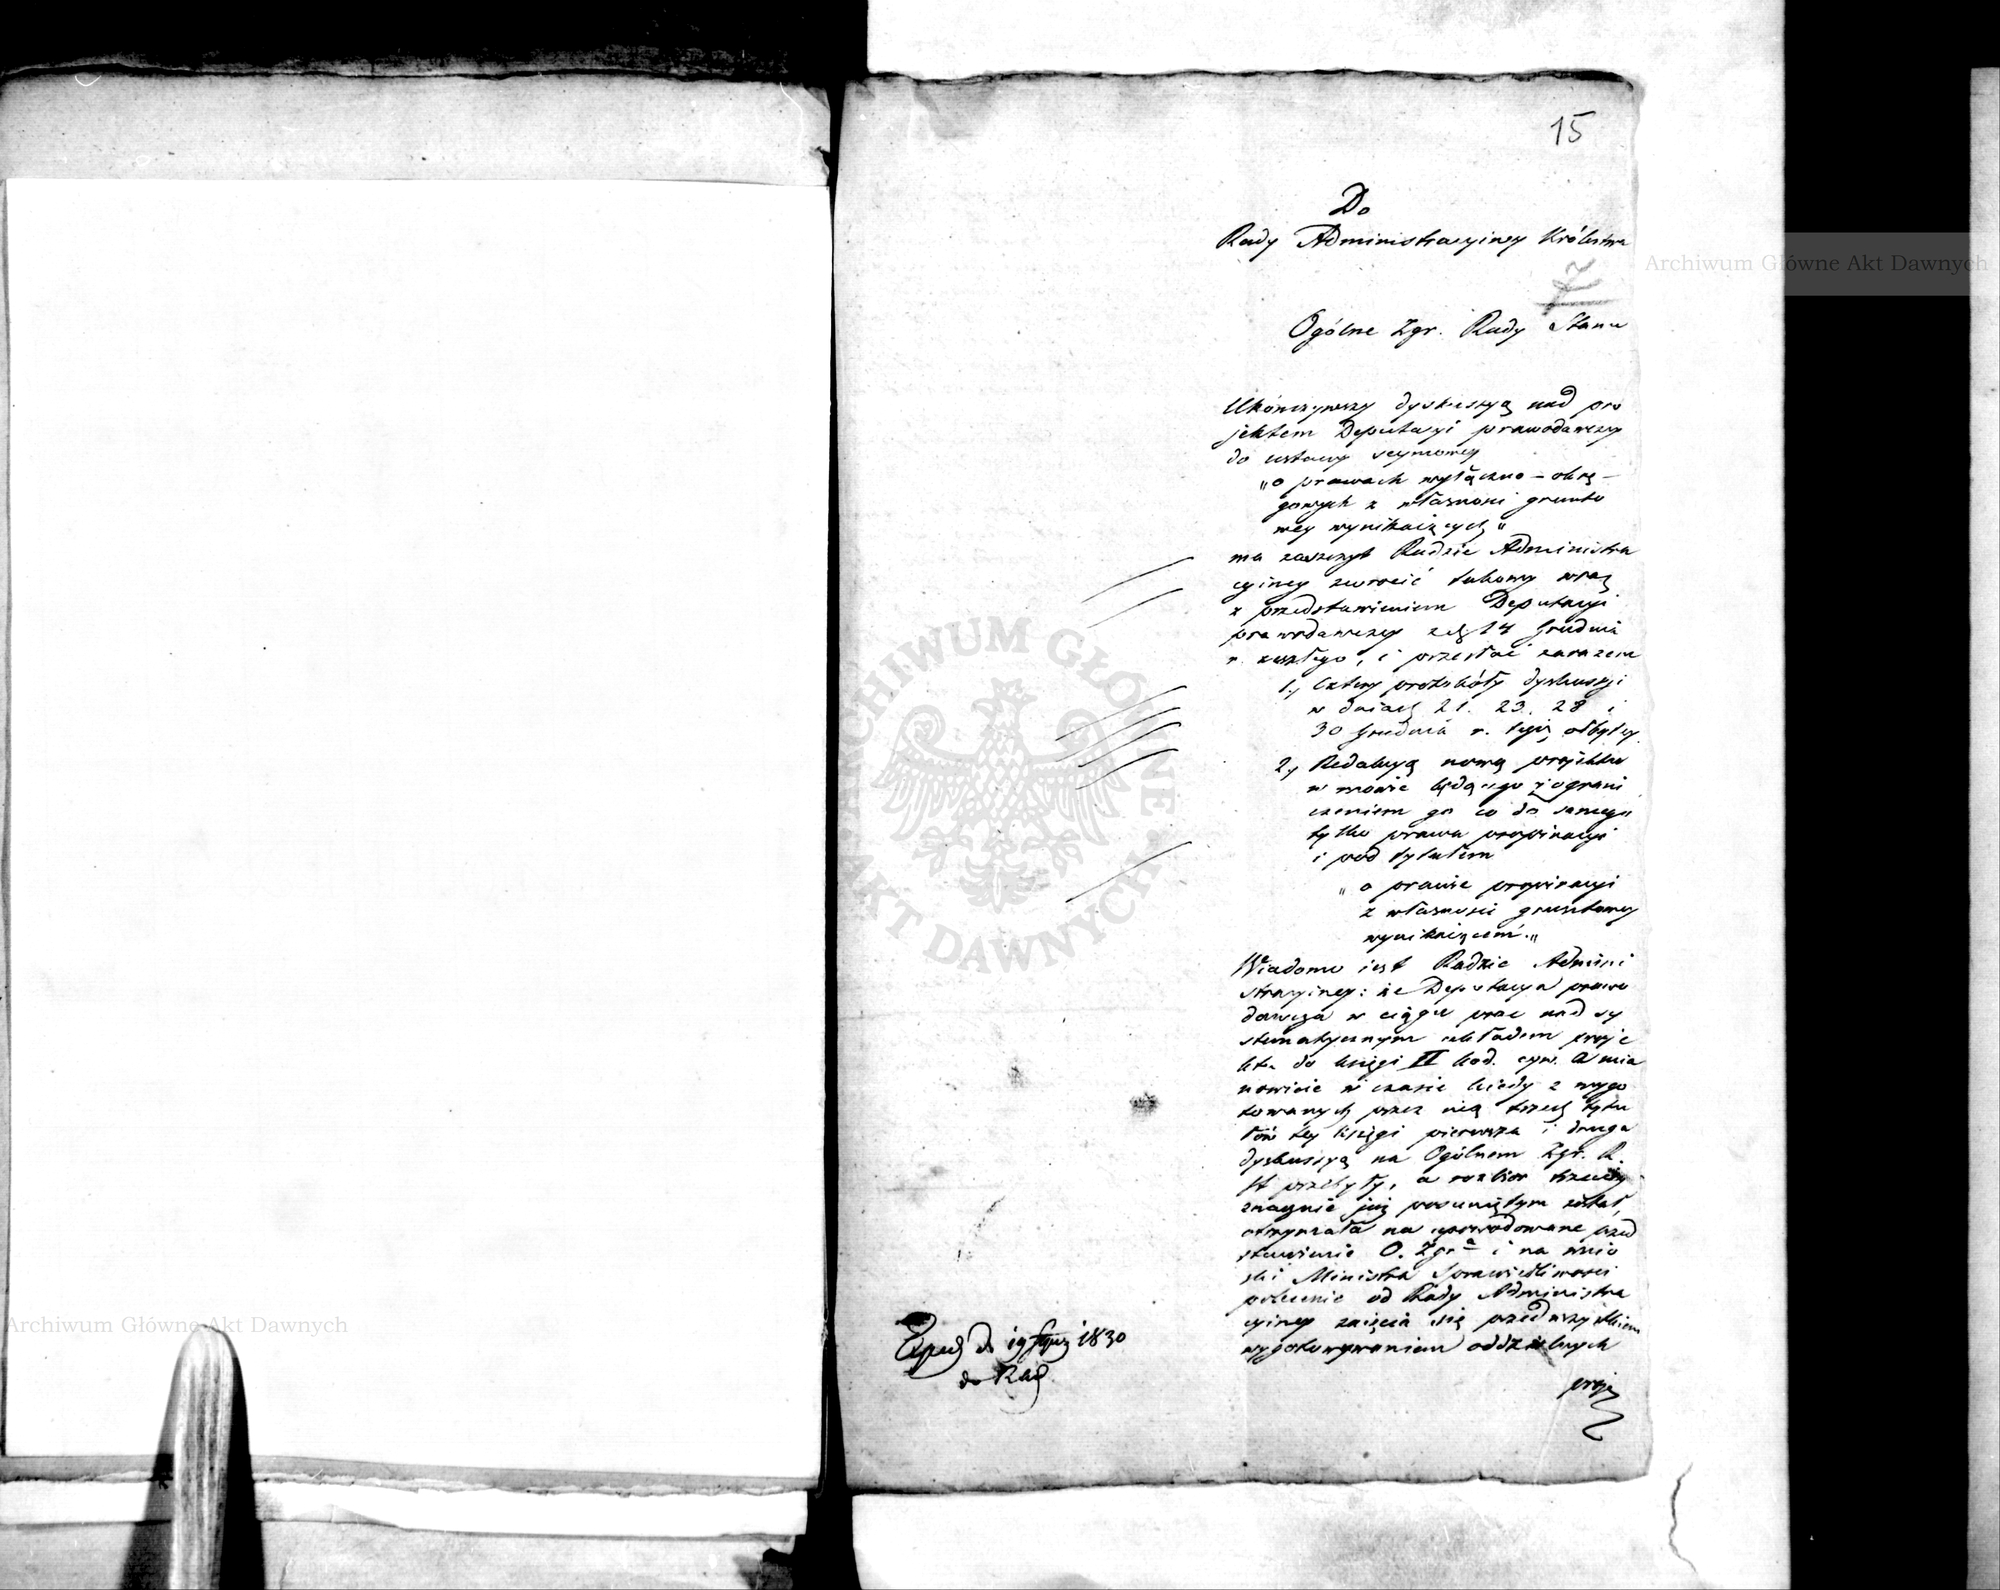 15
Do
Rady Administracyiney Królestwa
7
Ogólne Zgr. Rady Stanu
Ukończywszy dyskussyą nad pro
jektem Deputacyi prawodawczey
do ustawy seymowey
„o prawach wyłączno-okrę-
gowych z własności grunto
wey wynikaiących"
ma zaszczyt Radzie Administra
cyiney zwrócić takowy wraz
z przedstawieniem Deputacyi
prawodawczey z dn. 14 Grudnia
r. zeszłego, i przesłać zarazem
1., Cztery protokóły dyskussyi
w dniach 21. 23. 28 i
30 Grudnia r. tegoż odbytey.
2., Redakcyą nową projektu
w mowie będącego z ograni
czeniem go co do samego
tylko prawa propinacyi
i pod tytułem
„o prawie propinacyi
z własności gruntowey
wynikaiącem."
Wiadomo iest Radzie Admini
stracyiney: że Deputacya prawo
dawcza w ciągu prac nad sy
stematycznym układem proje
ktu do księgi II kod. cyw. a mia
nowicie w czasie kiedy z wygo
towanych przez nią trzech tytu
łów tey księgi pierwsza i druga
dyskussyą na Ogólnem Zgr. R.
St przebyły, a rozbior trzeciey
znacznie już posuniętym został,
otrzymała na spowodowane przed
stawienie O. Zgr.a i na wnio
ski Ministra Sprawiedliwości
polecenie od Rady Administra
cyiney zaięcia się przedewszystkiem
wygotowywaniem oddzielnych
proje
Exped d. 19 Stycz 1830
do Rad
Archiwum Główne Akt Dawnych
Archiwum Główne Akt Dawnych
ARCHIWUM GŁÓWNE • AKT DAWNYCH •